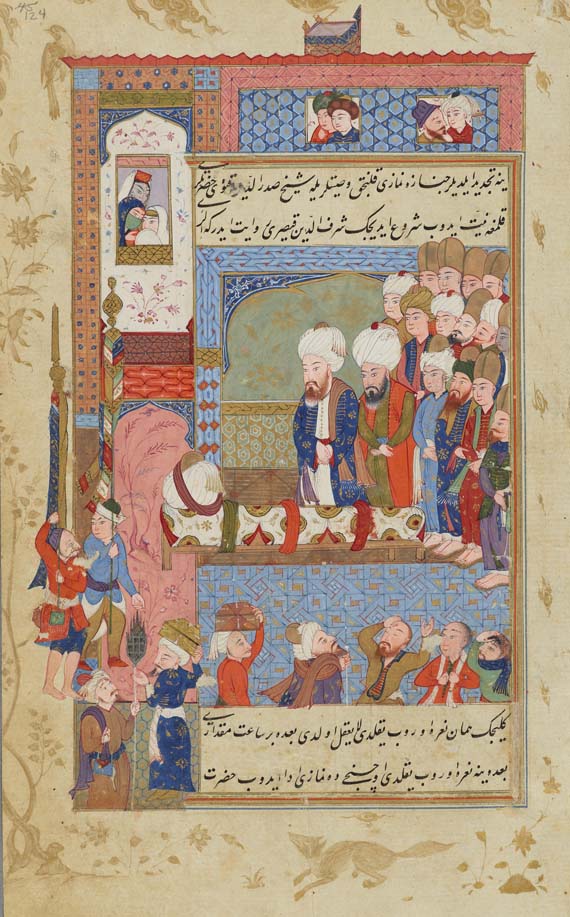 45
124
ینه تجدید ایلدیلر جنازه نمازی قلنجق وصیتلریله شیخ صدر الدین قونوی حضرتلری
قلمغه نیت ایدوب شروع ایدیجک شرف الدین قیصری روایت ایدر که
کلیجک همان نعره اوروب یقلدی لا یعقل اولدی بعده بر ساعت مقداری
بعده ینه نعره اوروب یقلدی اوچنجی ده نمازی ادا ایدوب حضرت